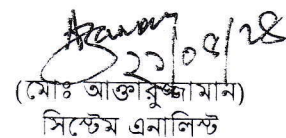 ২১/০৫/২৪
(মোঃ আক্তারুজ্জামান)
সিস্টেম এনালিস্ট